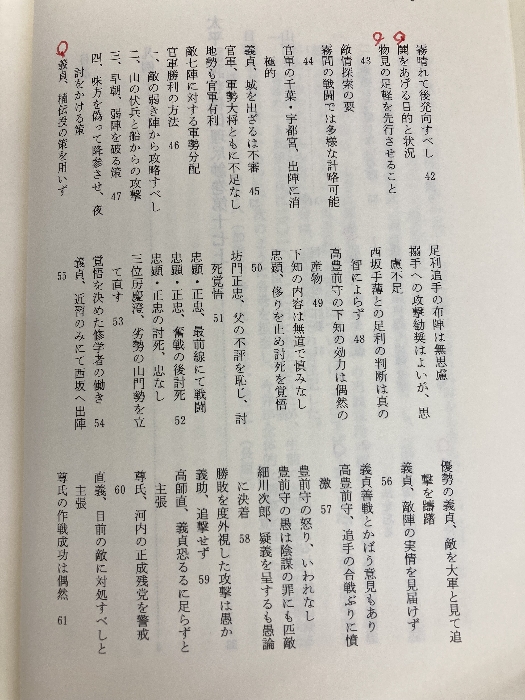 霧晴れて後発向すべし 42
鬨をあげる目的と状況
物見の足軽を先行させること
43
敵情探索の要
霧間の戦闘では多様な計略可能
44
官軍の千葉・宇都宮、出陣に消
極的
義貞、城を出ざるは不審 45
官軍、軍勢大将ともに不足なし
地勢も官軍有利
敵七陣に対する軍勢分配
官軍勝利の方法 46
一、敵の弱き陣から攻略すべし
二、山の伏兵と船からの攻撃
三、早朝、弱陣を破る策 47
四、味方を偽って降参させ、夜
討をかける策
義貞、楠伝授の策を用いず
足利追手の布陣は無思慮
搦手への攻撃勧奨はよいが、思
慮不足
西坂手薄との足利の判断は真の
智によらず 48
高豊前守の下知の効力は偶然の
産物 49
下知の内容は無道で慎みなし
忠顕、侈りを止め討死を覚悟
50
坊門正忠、父の不評を恥じ、討
死覚悟 51
忠顕・正忠、最前線にて戦闘
忠顕・正忠、奮戦の後討死 52
忠顕・正忠の討死、忠なし
三位房慶澄、劣勢の山門勢を立
て直す 53
覚悟を決めた修学者の働き 54
義貞、近習のみにて西坂へ出陣
55
優勢の義貞、敵を大軍と見て追
撃を躊躇
義貞、敵陣の実情を見届けず
56
義貞善戦とかばう意見もあり
高豊前守、追手の合戦ぶりに憤
激 57
豊前守の怒り、いわれなし
豊前守の愚は陰謀の罪にも匹敵
細川次郎、疑義を呈するも愚論
に決着 58
勝敗を度外視した攻撃は愚か
義助、追撃せず 59
高師直、義貞恐るるに足らずと
主張
尊氏、河内の正成残党を警戒
60
直義、目前の敵に対処すべしと
主張
尊氏の作戦成功は偶然 61